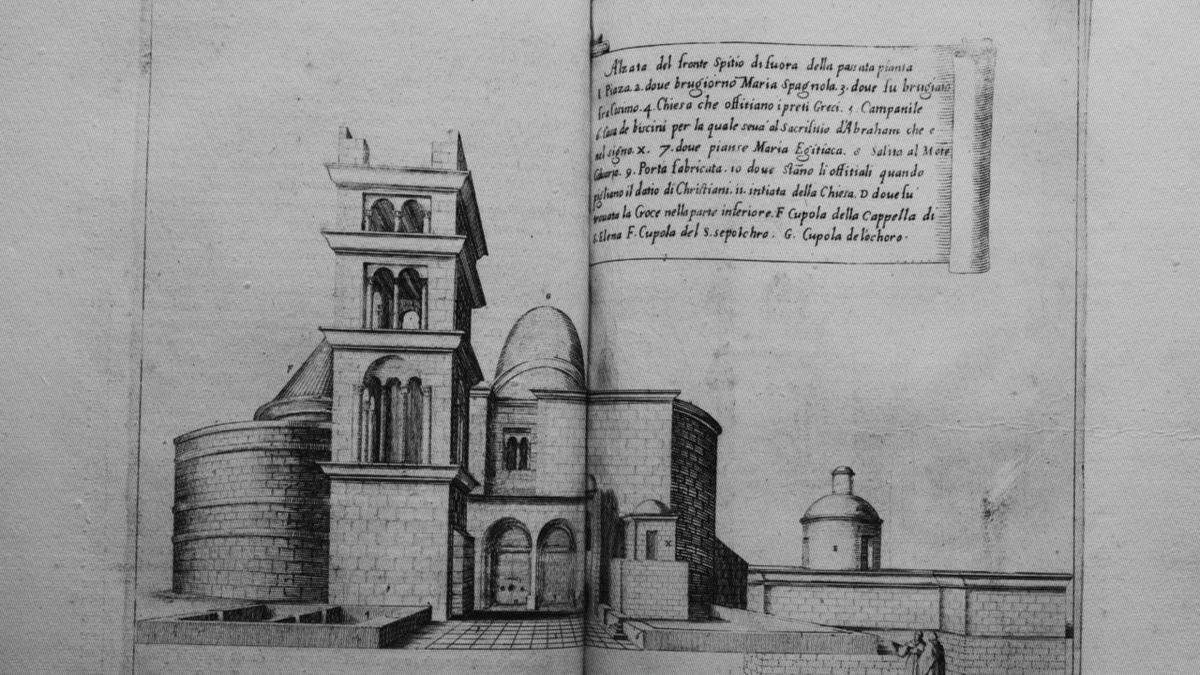 Alzata del fronte Spitio di fuora della passata pianta
1. Piaza. 2. doue brugiorno Maria Spagnola. 3. doue fu brugiato
fra Cosimo. 4. Chiesa che offitiano i preti Greci. 5. Campanile
6. Casa de biscini per la quale seua al Sacrifitio d'Abraham che e
nel signo. X. 7. doue pianse Maria Egitiaca. 8 Salita al Mote
Caluario. 9. Porta fabricata. 10 doue stano li offitiali quando
pigliano il datio di Christiani. 11. intiata della Chiesa. D doue fu
trouata la Croce nella parte inferiore. F Cupola della Cappella di
S. Elena F. Cupola del S. sepolchro. G. Cupola de lo choro.